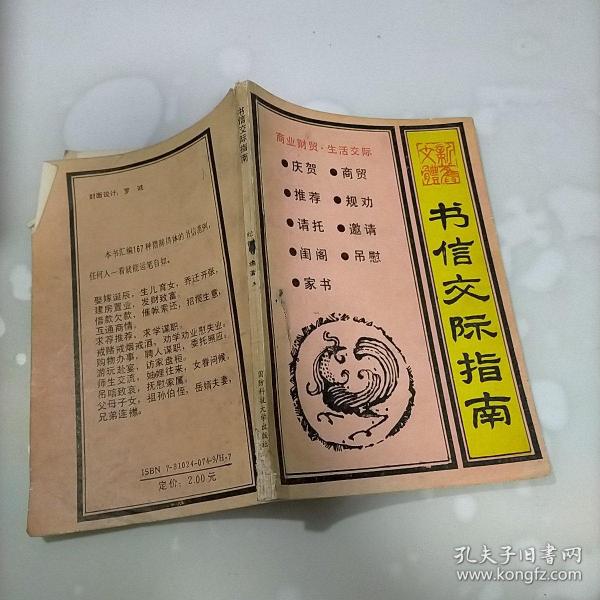 商业财贸·生活交际
●庆贺 ●商贸
●推荐 ●规劝
●请托 ●邀请
●闺阁 ●吊慰
●家书
新旧
文体
书信交际指南
书信交际指南
编著
国防科技大学出版社
封面设计：罗 诚
本书汇编167种措辞得体的书信范例，
任何人一看就能运笔自如。
娶嫁诞辰，生儿育女，乔迁开张，
建房置业，发财致富。
借款欠款，催帐索还，招揽生意，
互通商情。
求荐推荐，求学谋职。
戒赌戒烟戒酒，劝学劝业慰失业。
购物办事，聘人谋职，委托照应。
游玩赴宴，访家盘桓。
师生交流，她哩往来，女眷问候，
吊唁致哀，抚慰家属。
父母子女，祖孙伯侄，岳婿夫妻，
兄弟连襟。
ISBN 7-81024-074-3/H·7
定价：2.00元
孔夫子旧书网
www.kongfz.com